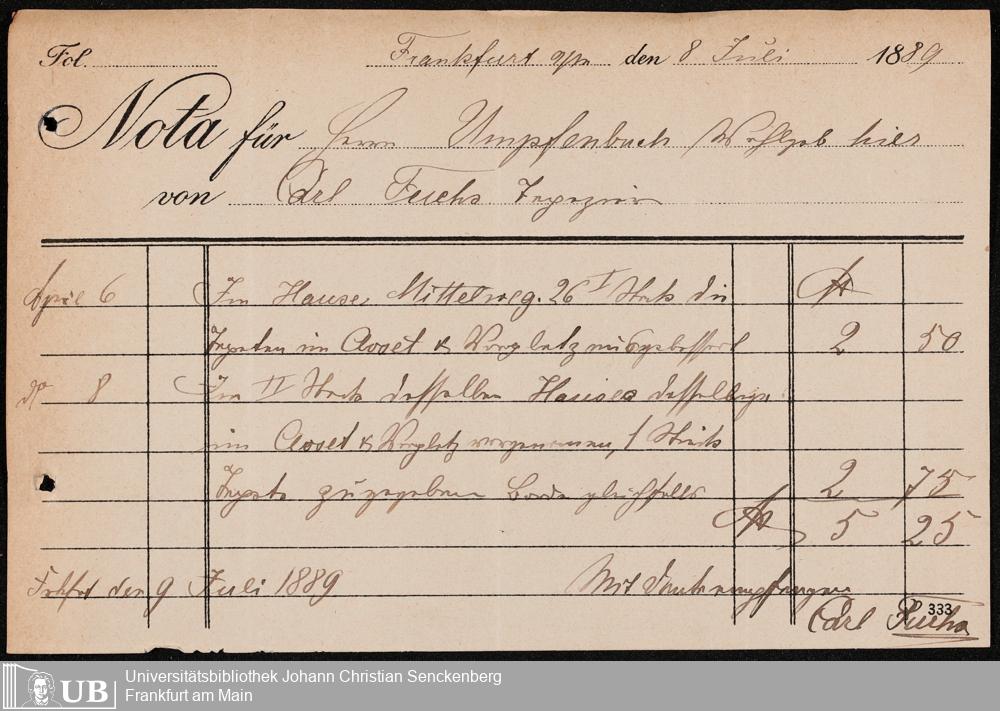 Fol. Frankfurt a/m den 8 Juli 1889
Nota für Herrn Umpfenbach Wohlgeb hier
von Carl Fuchs Tapezier
April 6 Im Hause Mittelweg. 26 I Stock die ℳ
Tapeten im Closet & Vorplatz ausgebessert 2 50
do 8 Im II Stock desselben Hauses dasselbige
im Closet & Vorplatz vorgenommen, 1 Stück
Tapete zugegeben Borde gleichfalls 2 75
ℳ 5 25
Frkfrt den 9 Juli 1889 Mit Dank empfangen
Carl Fuchs
333
UB
Universitätsbibliothek Johann Christian Senckenberg
Frankfurt am Main